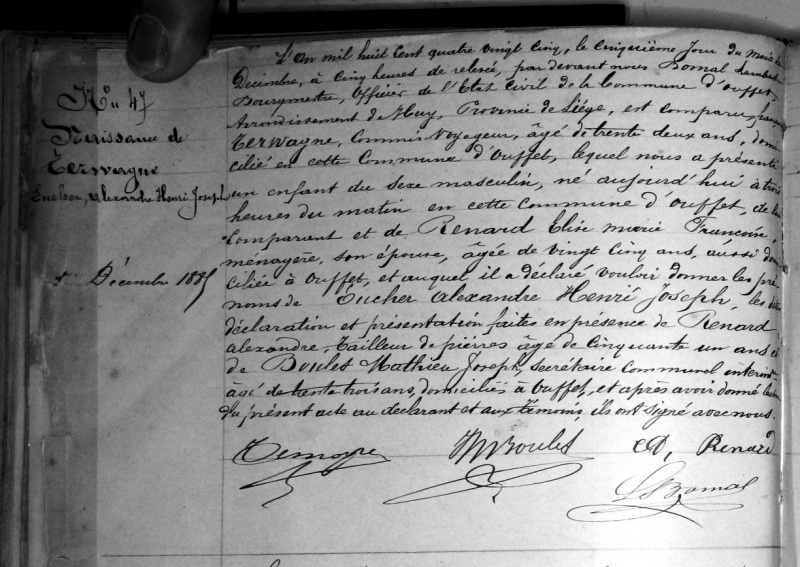 N° 47
Naissance de
Terwagne
Eucher, Alexandre Henri Joseph
5 Décembre 1885
L'An mil huit cent quatre vingt cinq, le cinquième jour du mois de
Décembre, à cinq heures de relevée, par devant nous Bomal Lambert
Bourgmestre, Officier de l'Etat Civil de la Commune d'Ouffet,
Arrondissement de Huy, Province de Liége, est comparu,
Terwagne, Commis Voyageur, âgé de trente deux ans, domi
cilié en cette Commune d'Ouffet, lequel nous a présenté
un enfant du sexe masculin, né aujourd'hui à trois
heures du matin en cette commune d'Ouffet, de lui
comparant et de Renard Elise Marie Françoise,
ménagère, son épouse, âgée de vingt cinq ans, aussi domi
ciliée à Ouffet, et auquel il a déclaré vouloir donner les pré
noms de Eucher Alexandre Henri Joseph, les dites
déclaration et présentation faites en présence de Renard
Alexandre, tailleur de pierres âgé de cinquante un ans et
de Boulet Mathieu Joseph, secrétaire Communal interim
âgé de trente trois ans, domiciliés à Ouffet, et après avoir donné lecture
du présent acte au déclarant et aux témoins, ils ont signé avec nous.
MJ Boulet Renard
L Bomal